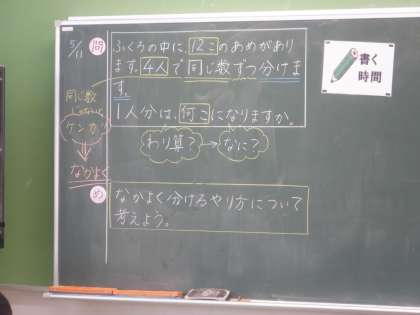 5/11
問
ふくろの中に、12このあめがあり
ます。4人で同じ数ずつ分けま
す。
1人分は、何こになりますか。
わり算?
なに?
同じ数
じゃないと
ケンカ
なかよく
め
なかよく分けるやり方について
考えよう。
書く
時間